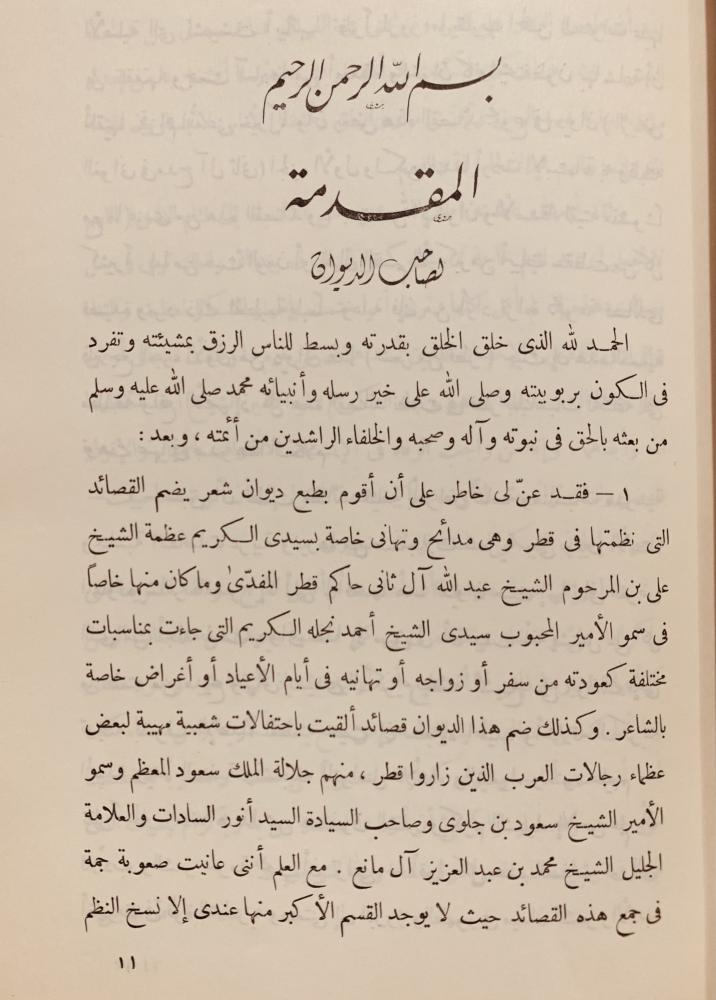 بسم الله الرحمن الرحيم
المقدمة
لصاحب الديوان
الحمد لله الذى خلق الخلق بقدرته وبسط للناس الرزق بمشيئته وتفرد
فى الكون بربوبيته وصلى الله على خير رسله وأنبيائه محمد صلى الله عليه وسلم
من بعثه بالحق فى نبوته وآله وصحبه والخلفاء الراشدين من أئمته ، وبعد :
١ — فقد عنّ لى خاطر على أن أقوم بطبع ديوان شعر يضم القصائد
التى نظمتها فى قطر وهى مدائح وتهانى خاصة بسيدى الكريم عظمة الشيخ
على بن المرحوم الشيخ عبد الله آل ثانى حاكم قطر المفدّىٰ وما كان منها خاصاً
فى سمو الأمير المحبوب سيدى الشيخ أحمد نجله الكريم التى جاءت بمناسبات
مختلفة كعودته من سفر أو زواجه أو تهانيه فى أيام الأعياد أو أغراض خاصة
بالشاعر . وكذلك ضم هذا الديوان قصائد ألقيت باحتفالات شعبية مهيبة لبعض
عظماء رجالات العرب الذين زاروا قطر ، منهم جلالة الملك سعود المعظم وسمو
الأمير الشيخ سعود بن جلوى وصاحب السيادة السيد أنور السادات والعلامة
الجليل الشيخ محمد بن عبد العزيز آل مانع . مع العلم أننى عانيت صعوبة جمة
فى جمع هذه القصائد حيث لا يوجد القسم الأكبر منها عندى إلا نسخ النظم
١١